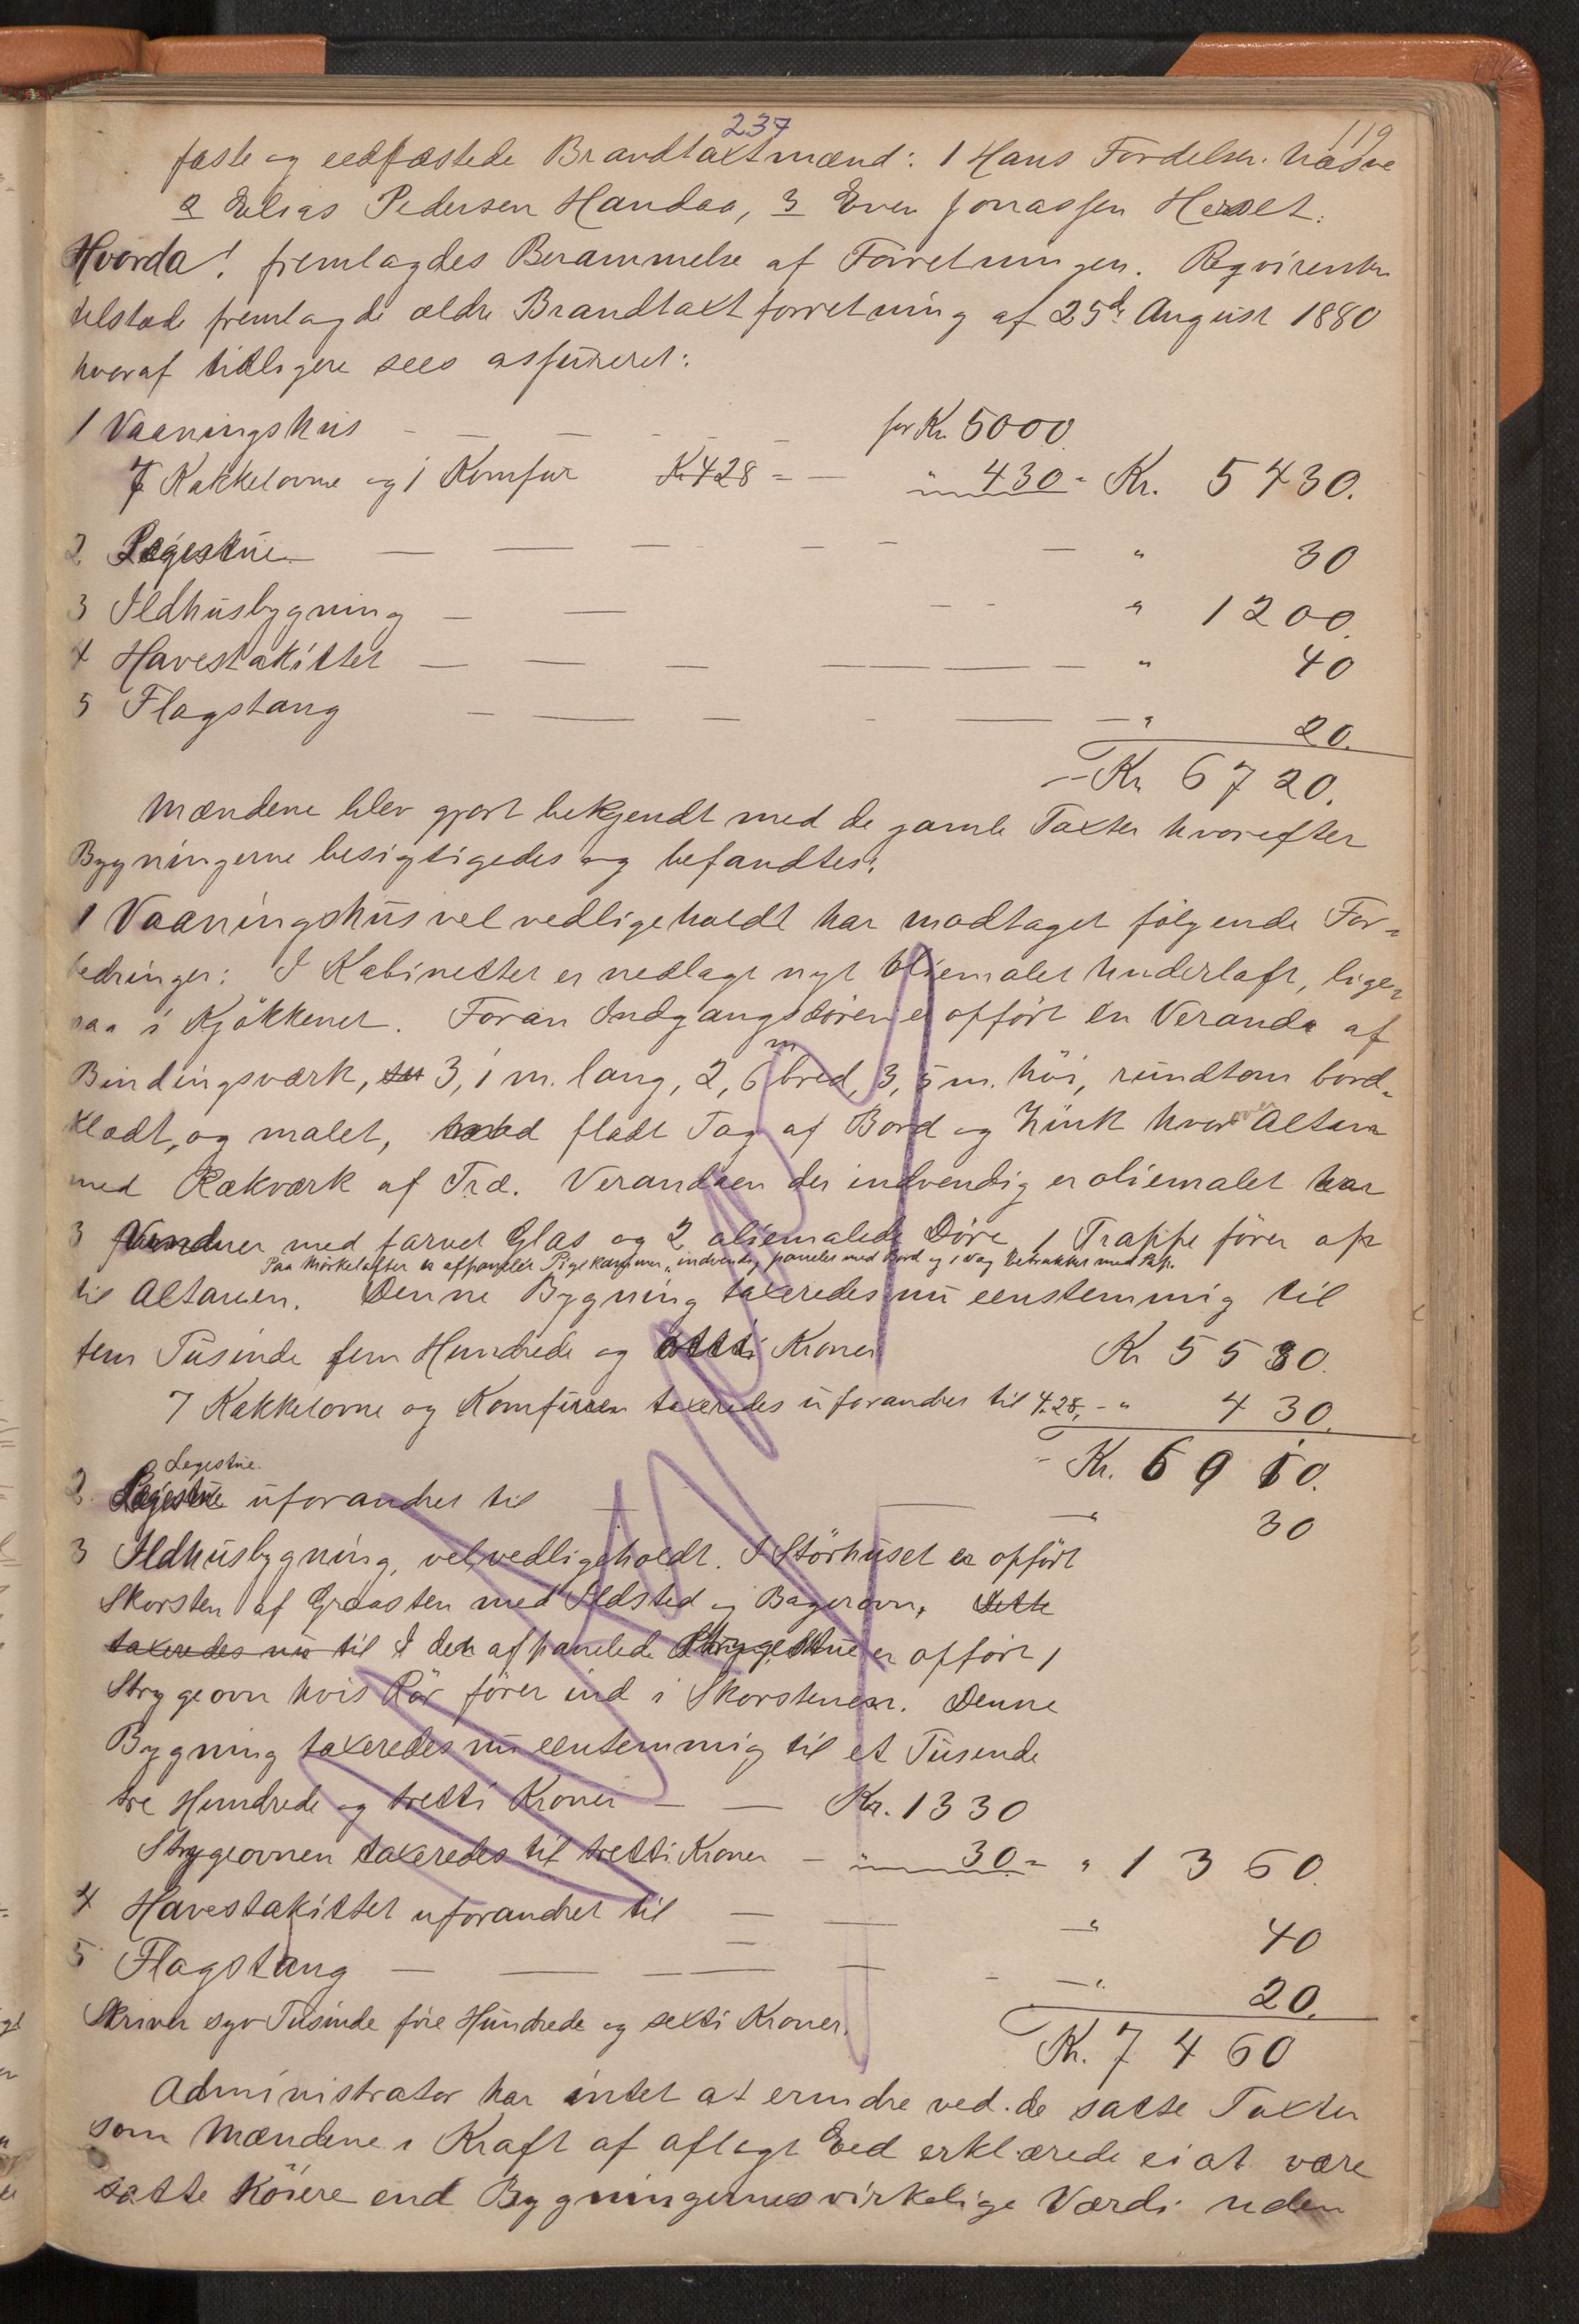 237
119
faste og eedfæstede Brandtaxtmænd: 1 Hans Fordelsen
2 Elias Pedersen Handaa, 3 Even Jonassen
Hvorda! fremlagdes Berammelse af Forretningen. Reqvirenten
tilstede fremlagde ældre Brandtaxtforretning af 25de August 1880
hvoraf tidligere sees assureret:
1 Vaaningshus - - - - for Kr. 5000
7 Kakkelovne og 1 Komfur Kr 428 = - " 430 = Kr. 5430.
2 Legestue - - - - " 30
3 Ildhusbygning - - - - " 1200.
4 Havestakittet - - - - " 40
5 Flagstang - - - - " 20.
Kr 6720.
Mændene blev gjort bekjendt med de gamle Taxter hvorefter
Bygningerne besigtigedes og befandtes:
1 Vaaningshus vel vedligeholdt har modtaget følgende For-
bedringer: I Kabinettet er nedlagt nyt oliemalet Underlaft, lige-
saa i Kjøkkenet. Foran Indgangsdøren er opført en Veranda af
Bindingsværk, 3,1 m. lang, 2,6 m bred, 3,5 m. høi, rundtom bord-
klædt, og malet, med fladt Tag af Bord og Zink hvorover Altan
med Rækværk af Træ. Verandaen der indvendig er oliemalet har
3 Vinduer med farvet Glas og 2 oliemalede Døre, 1 Trappe fører op
Paa Mørkeloftet er afpanelet Pigekammer, indvendig panelet med Bord og 1 Væg betrukket med Pap.
til Altanen. Denne Bygning taxeredes nu eenstemmig til
fem Tusinde fem Hundrede og otti Kroner Kr 5580.
7 Kakkelovne og Komfuren taxeredes uforandret til 428, - " 430.
Kr. 6010.
Legestue.
2 Legestue uforandret til - - - " 30
3 Ildhusbygning, vel vedligeholdt. I Störhuset er opført
Skorsten af Graasten med Ildsted og Bagerovn, Dette
taxeredes nu til I den afpanelede Strygestue er opført 1
Strygeovn hvis Rør fører ind i Skorstenen. Denne
Bygning taxeredes nu eenstemmig til et Tusende
tre Hundrede og tretti Kroner - - Kr. 1330
Strygeovnen taxeredes til tretti Kroner - " 30 = " 1360.
4 Havestakittet uforandret til - - " 40
5 Flagstang - - - - " 20.
Skriver syv Tusinde fire Hundrede og sexti Kroner. Kr. 7460
Administrator har intet at erindre ved de satte Taxter
som Mændene i Kraft af aflagt Eed erklærede ei at være
satte høiere end Bygningernes virkelige Værdi uden